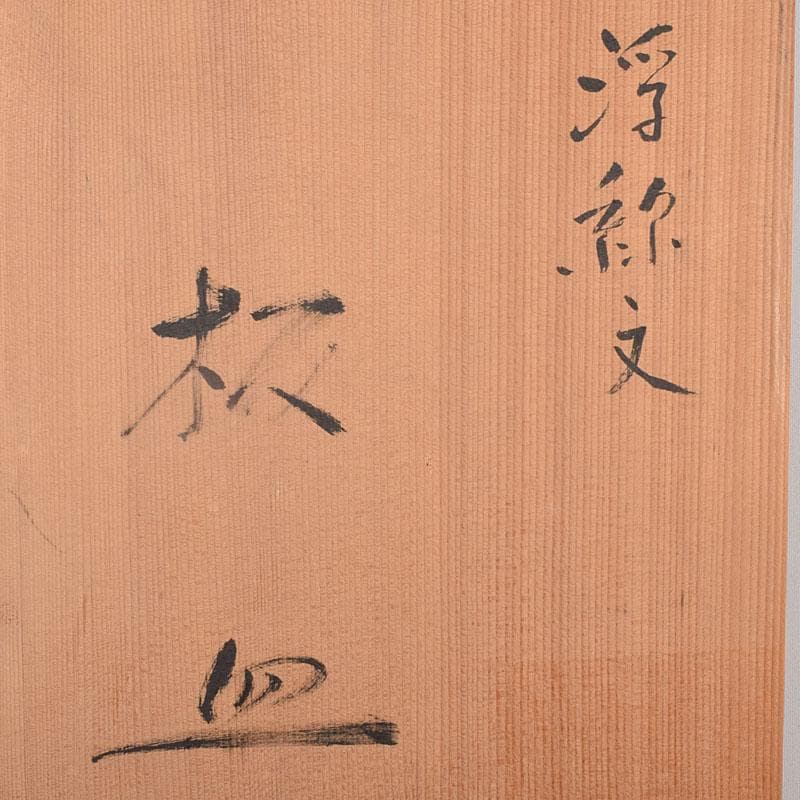 浮線文
板皿